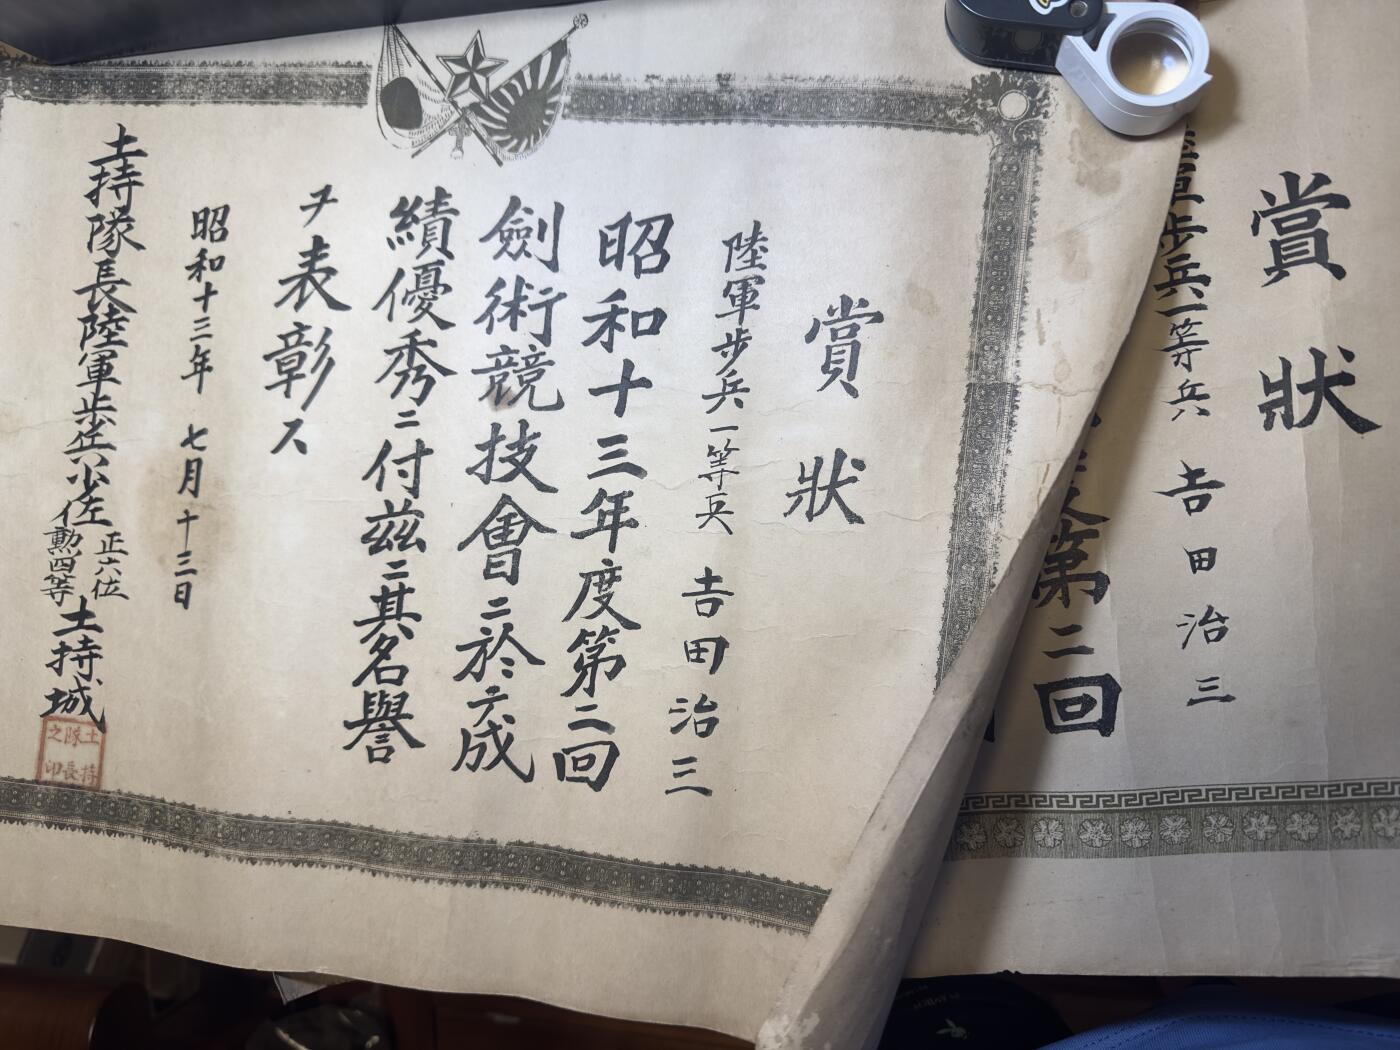 賞狀
陸軍步兵一等兵 吉田治三
昭和十三年度第二回
劍術競技會ニ於テ成
績優秀ニ付茲ニ其名譽
ヲ表彰ス
昭和十三年七月十三日
土持隊長陸軍步兵少佐 正六位 勲四等 土持城
土持隊長之印
賞狀
軍步兵一等兵 吉田治三
第二回